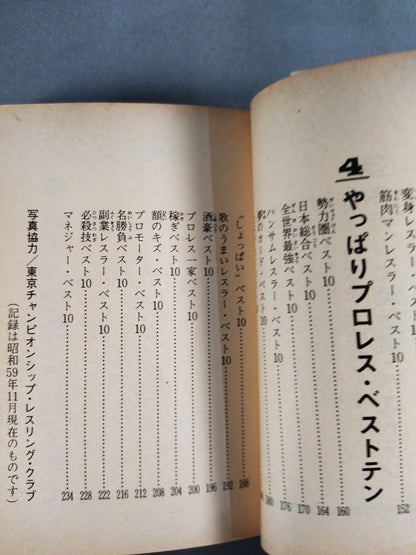 変身レスラー・ベスト
筋肉マンレスラー・ベスト10……152
4 やっぱりプロレス・ベストテン
勢力圏ベスト10……160
日本総合ベスト10……164
全世界最強ベスト10……170
ハンサムレスラー・ベスト10……176
のカード・ベスト10……180
“しょっぱい”ベスト10……188
歌のうまいレスラー・ベスト10……192
酒豪ベスト10……196
プロレス一家ベスト10……200
稼ぎベスト10……204
額のキズ・ベスト10……208
プロモーター・ベスト10……212
名勝負ベスト10……216
副業レスラー・ベスト10……222
必殺技ベスト10……228
マネジャー・ベスト10……234
写真協力／東京チャンピオンシップ・レスリング・クラブ
（記録は昭和59年11月現在のものです）